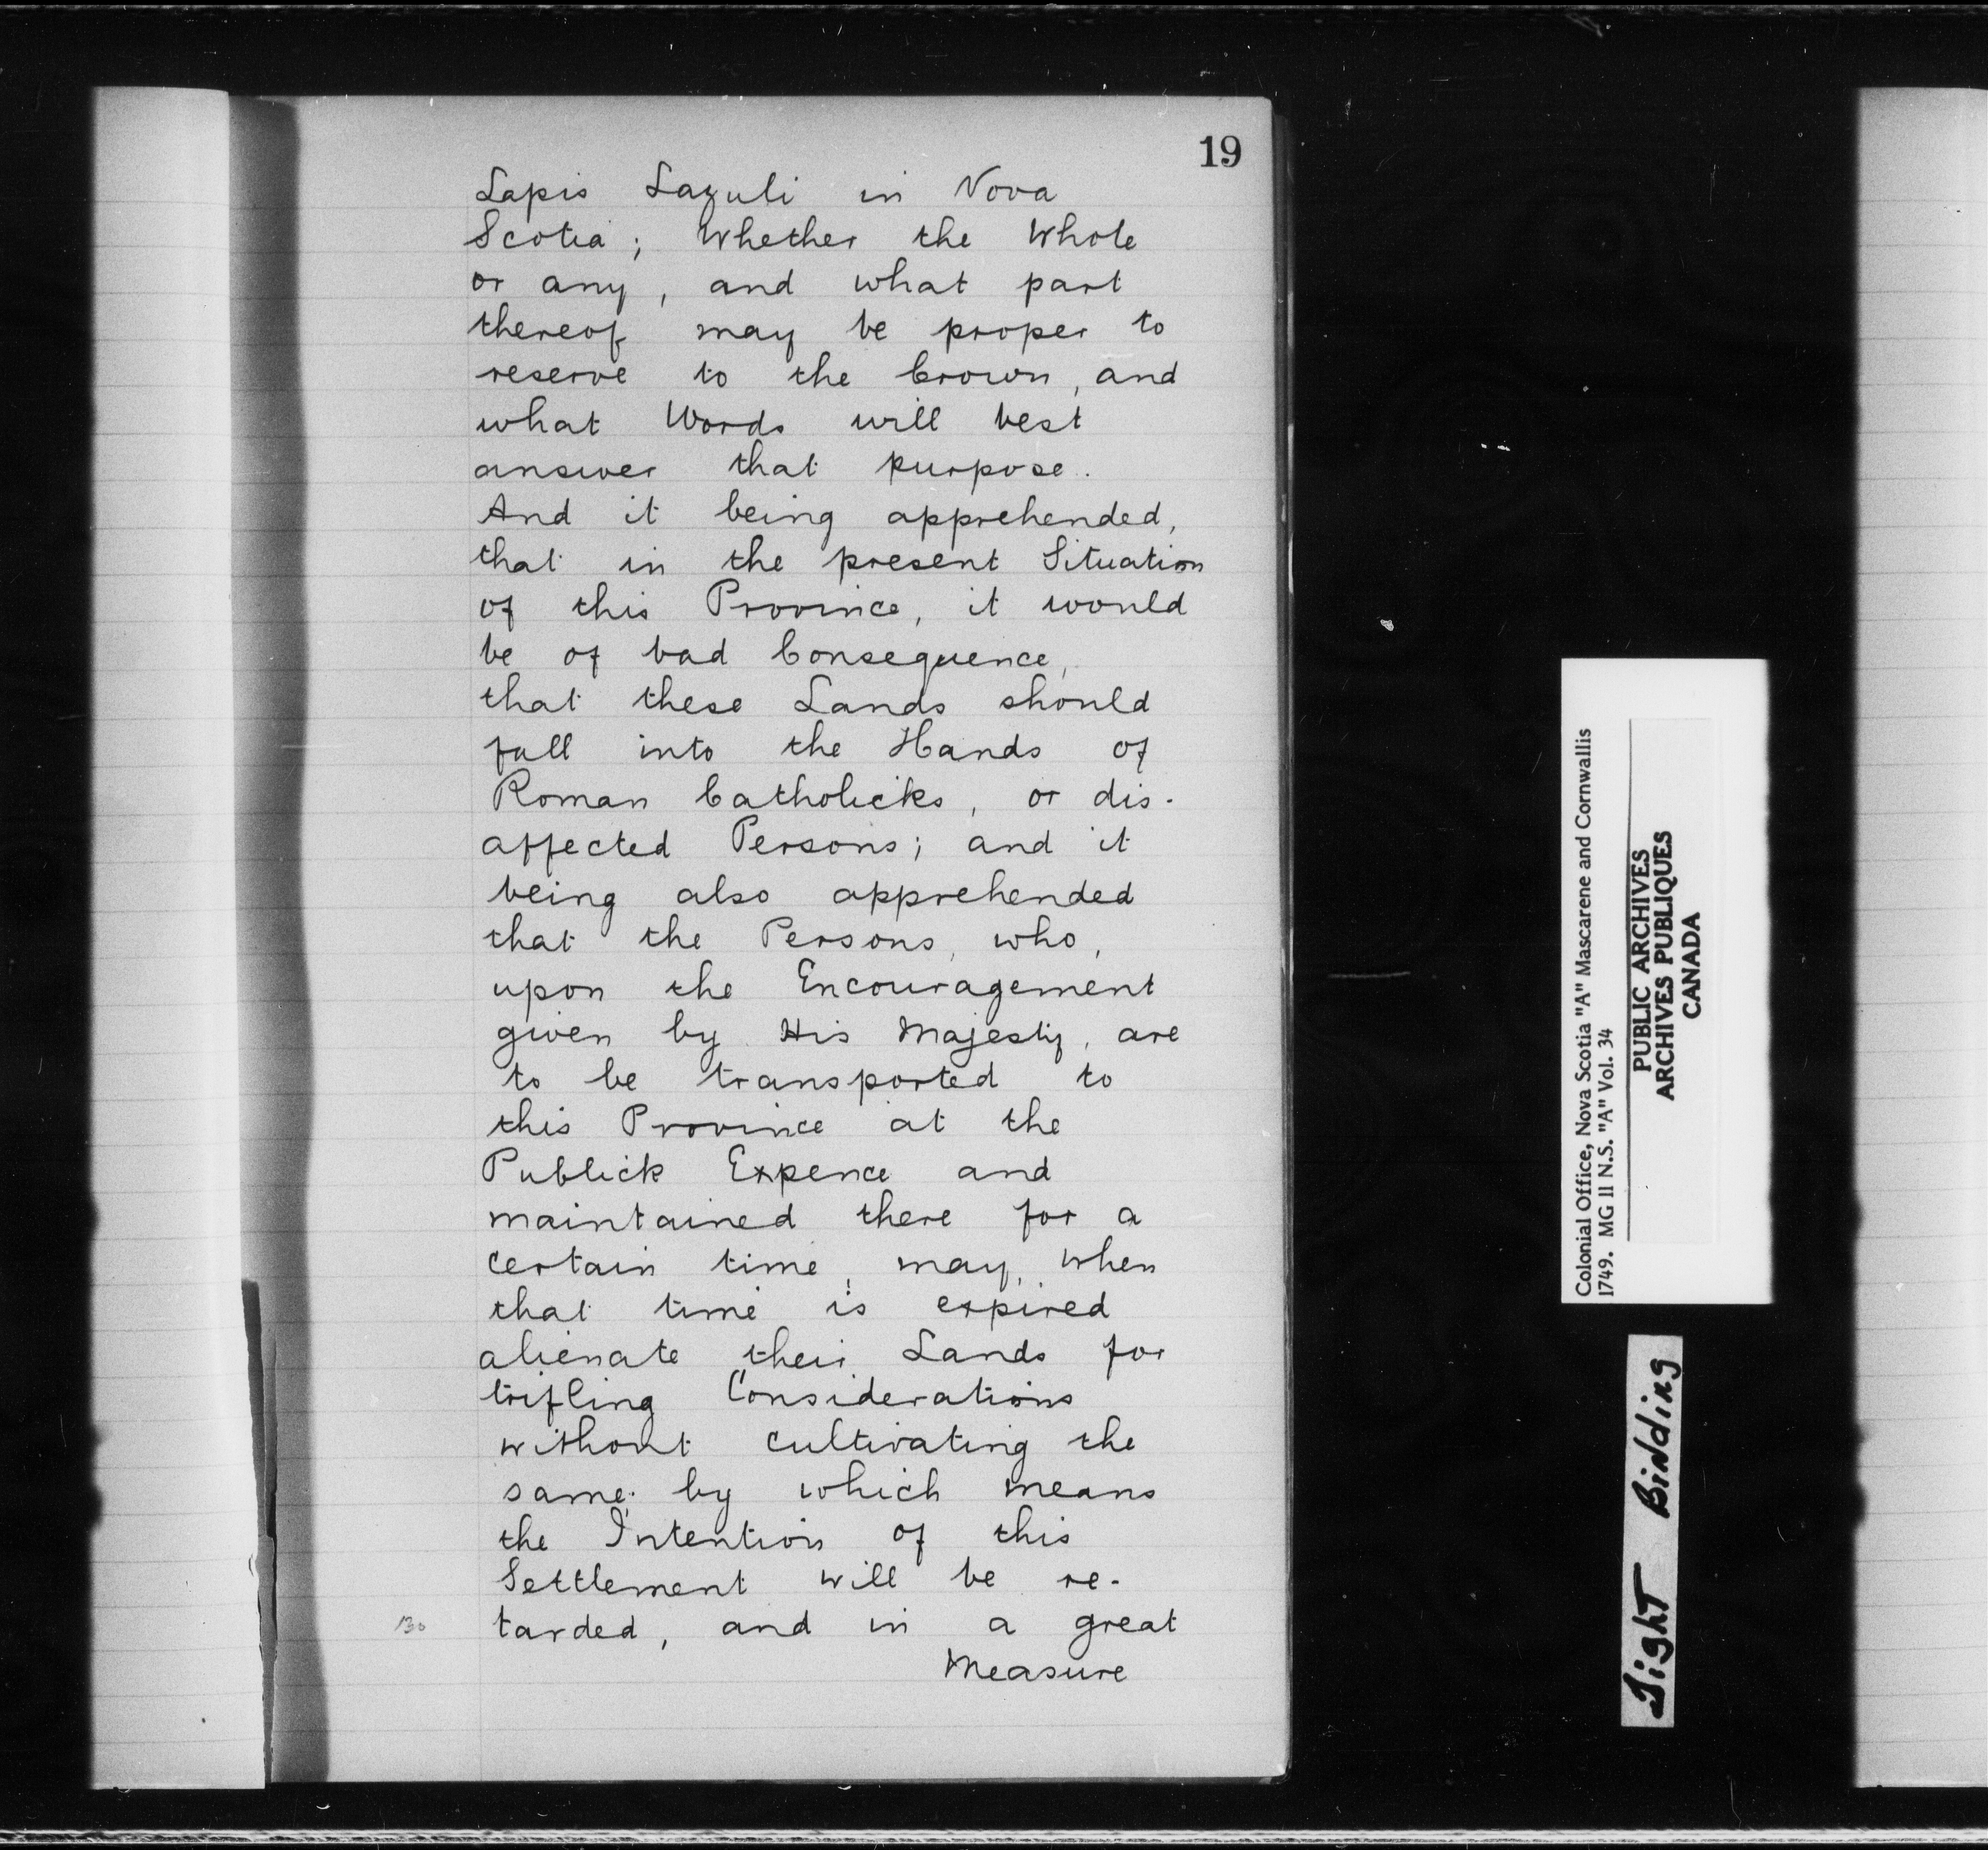 19
Lapis Lazuli in Nova
Scotia; Whether the Whole
or any, and what part
thereof may be proper to
reserve to the Crown, and
what Words will best
answer that purpose.
And it being apprehended,
that in the present Situation
of this Province, it would
be of bad Consequence,
that these Lands should
fall into the Hands of
Roman Catholicks, or dis-
affected Persons; and it
being also apprehended
that the Persons, who,
upon the Encouragement
given by His Majesty, are
to be transported to
this Province at the
Publick Expence and
maintained there for a
certain time, may, when
that time is expired
alienate their Lands for
trifling Considerations
without cultivating the
same; by which means
the Intention of this
Settlement will be re-
130 tarded, and in a great
Measure
Colonial Office, Nova Scotia "A" Mascarene and Cornwallis
1749. MG 11 N.S. "A" Vol. 34
PUBLIC ARCHIVES
ARCHIVES PUBLIQUES
CANADA
Tight Binding